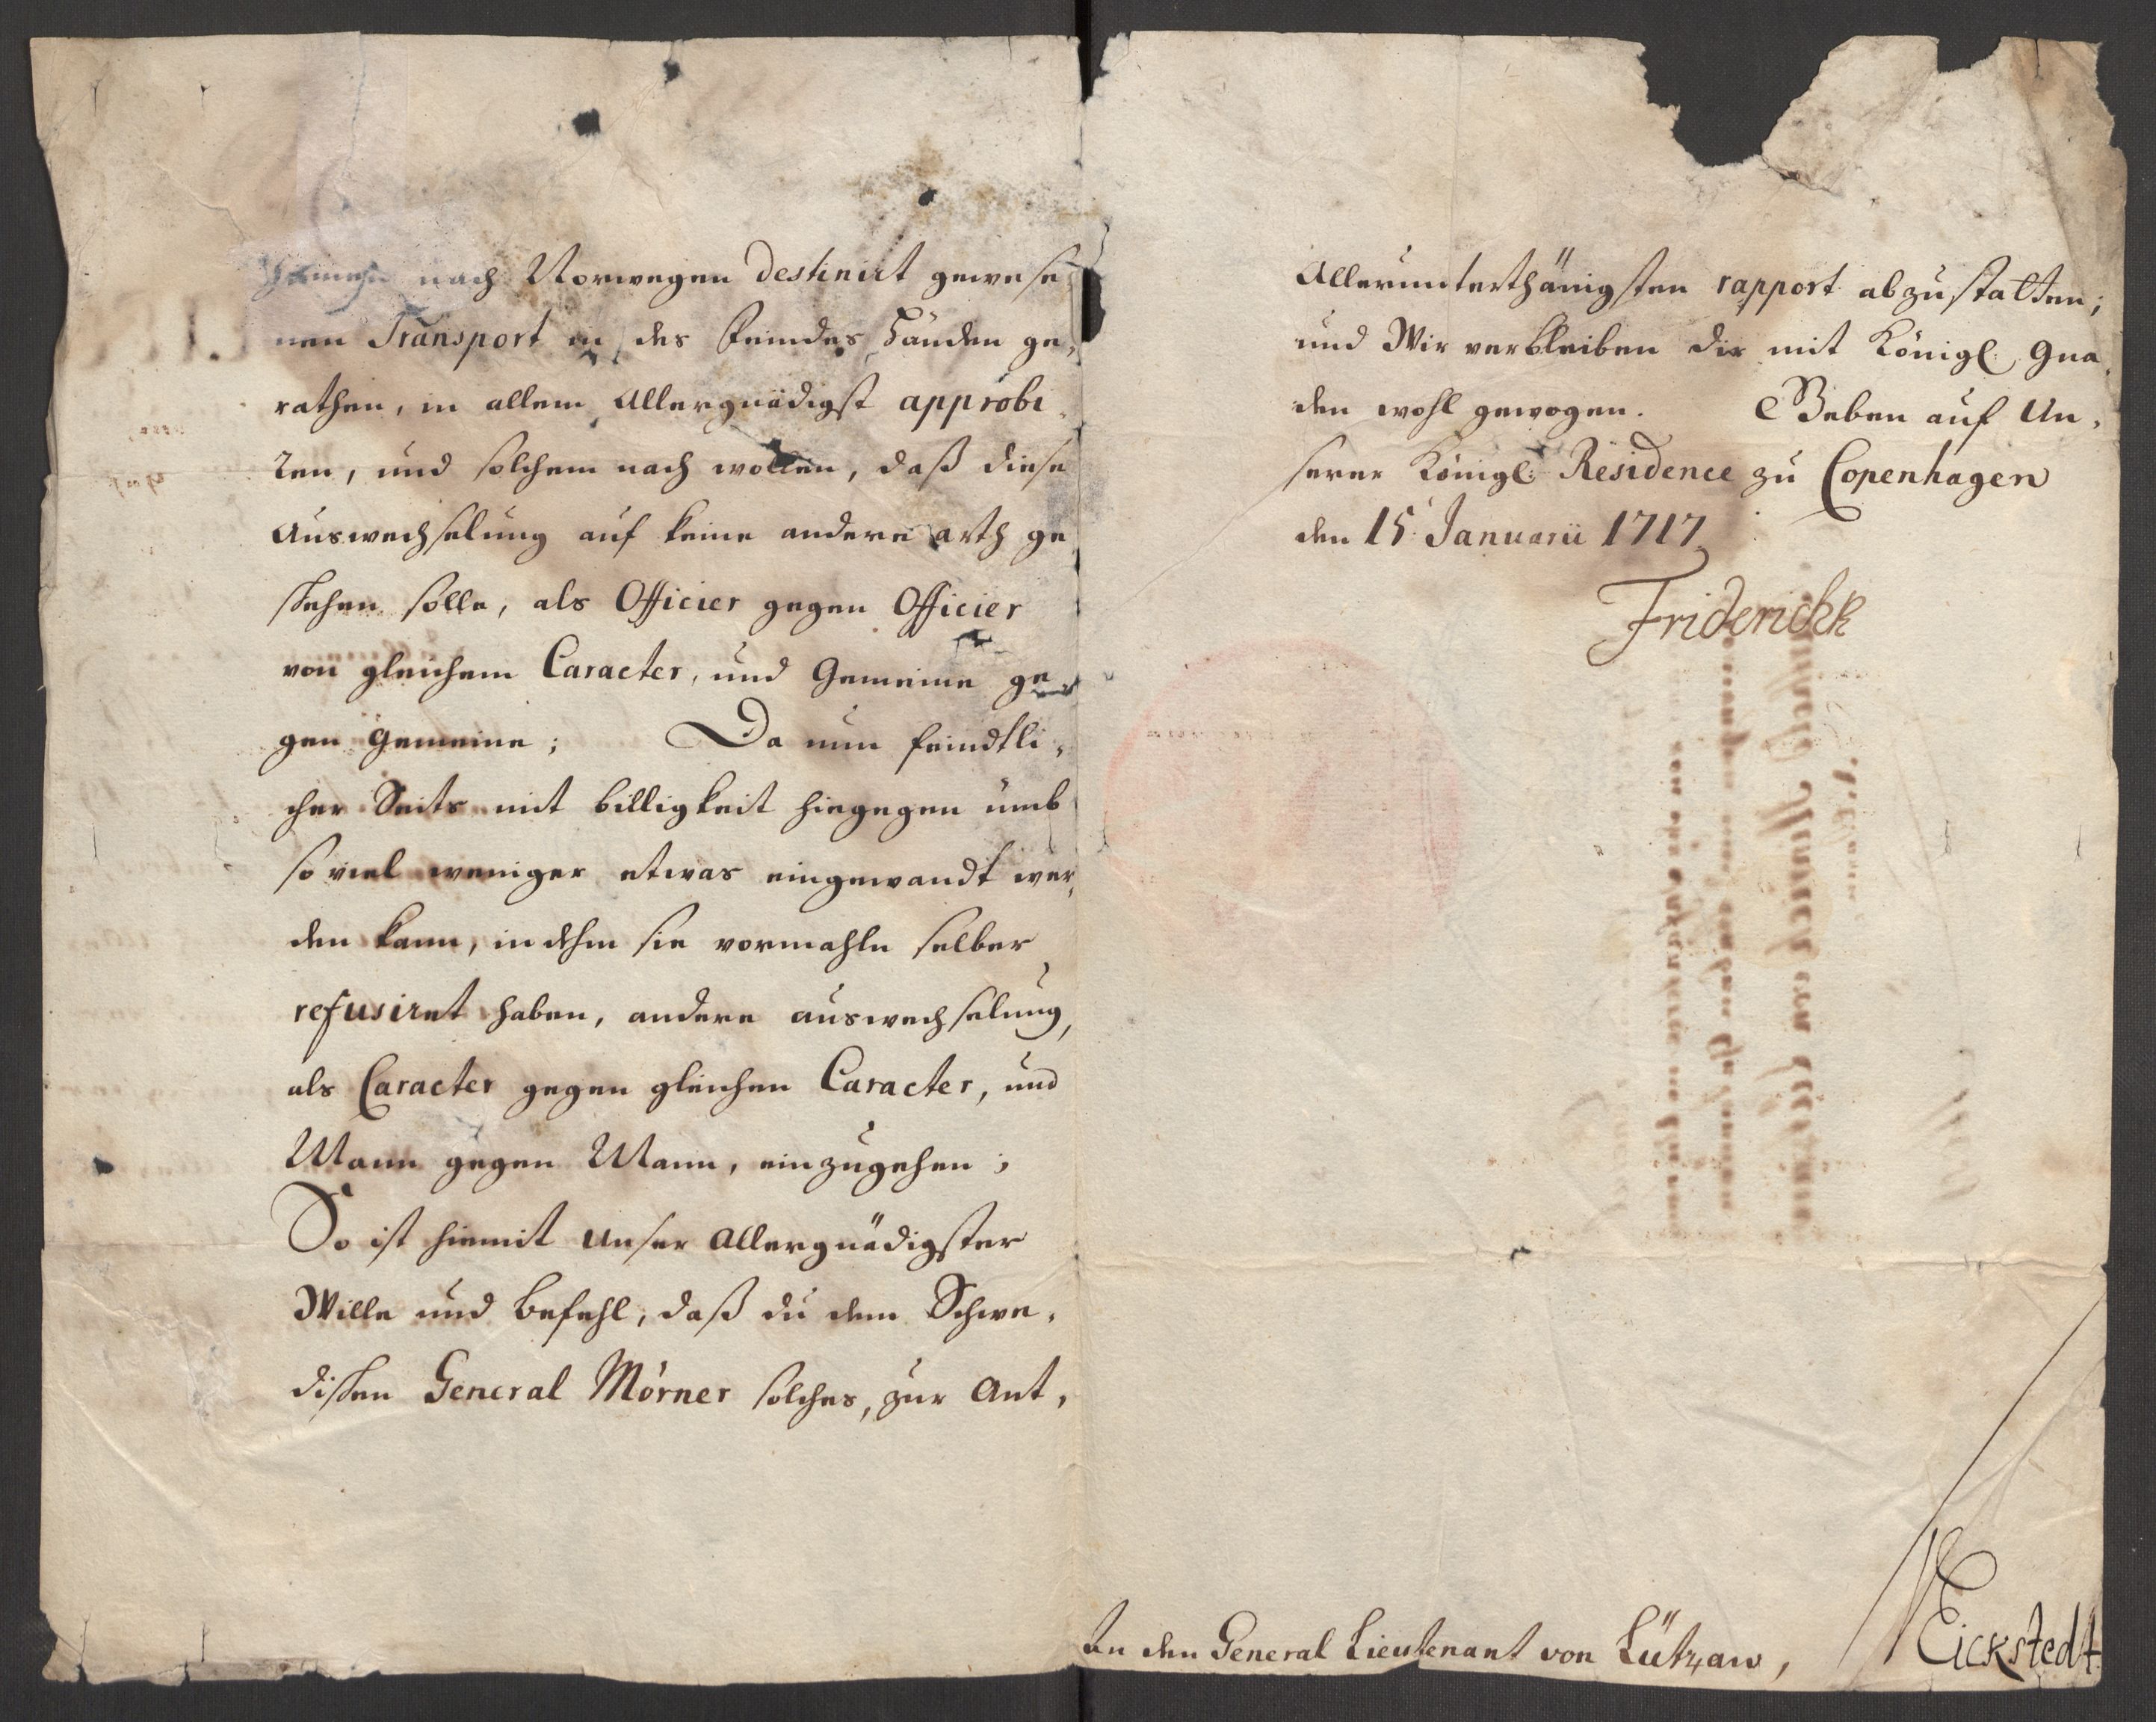 nach Norwegen destinirt gewese
nen Transport in des Feindes Händen ge,
rathen, in allem Allergnädigst approbi
ren, und solchem nach wollen, daß diese
Auswechselung auf keine andere arth ge
schehen solle, als Officier gegen Officier
von gleichem Caracter, und Gemeine ge
gen Gemeine; Da nun feindtli,
cher Seits mit billigkeit hiegegen umb
so viel weniger etwas eingewandt wer,
den kann, in dehm sie vormahls selber
refusiret haben, andere auswechselung,
als Caracter gegen gleichen Caracter, und
Mann gegen Mann, einzugehen;
So ist hiemit Unser Allergnädigster
Wille und Befehl, daß du dem Schwe,
dischen General Mörner solches, zur Ant,
Allerunterthänigsten rapport abzustatten;
und Wir verbleiben dir mit Königl. Gna,
den wohl gewogen. Geben auf Un,
serer Königl: Residence zu Copenhagen
den 15. Januarii 1717
Friderich R
An den General Lieutenant von Lützaw,
Eickstedt